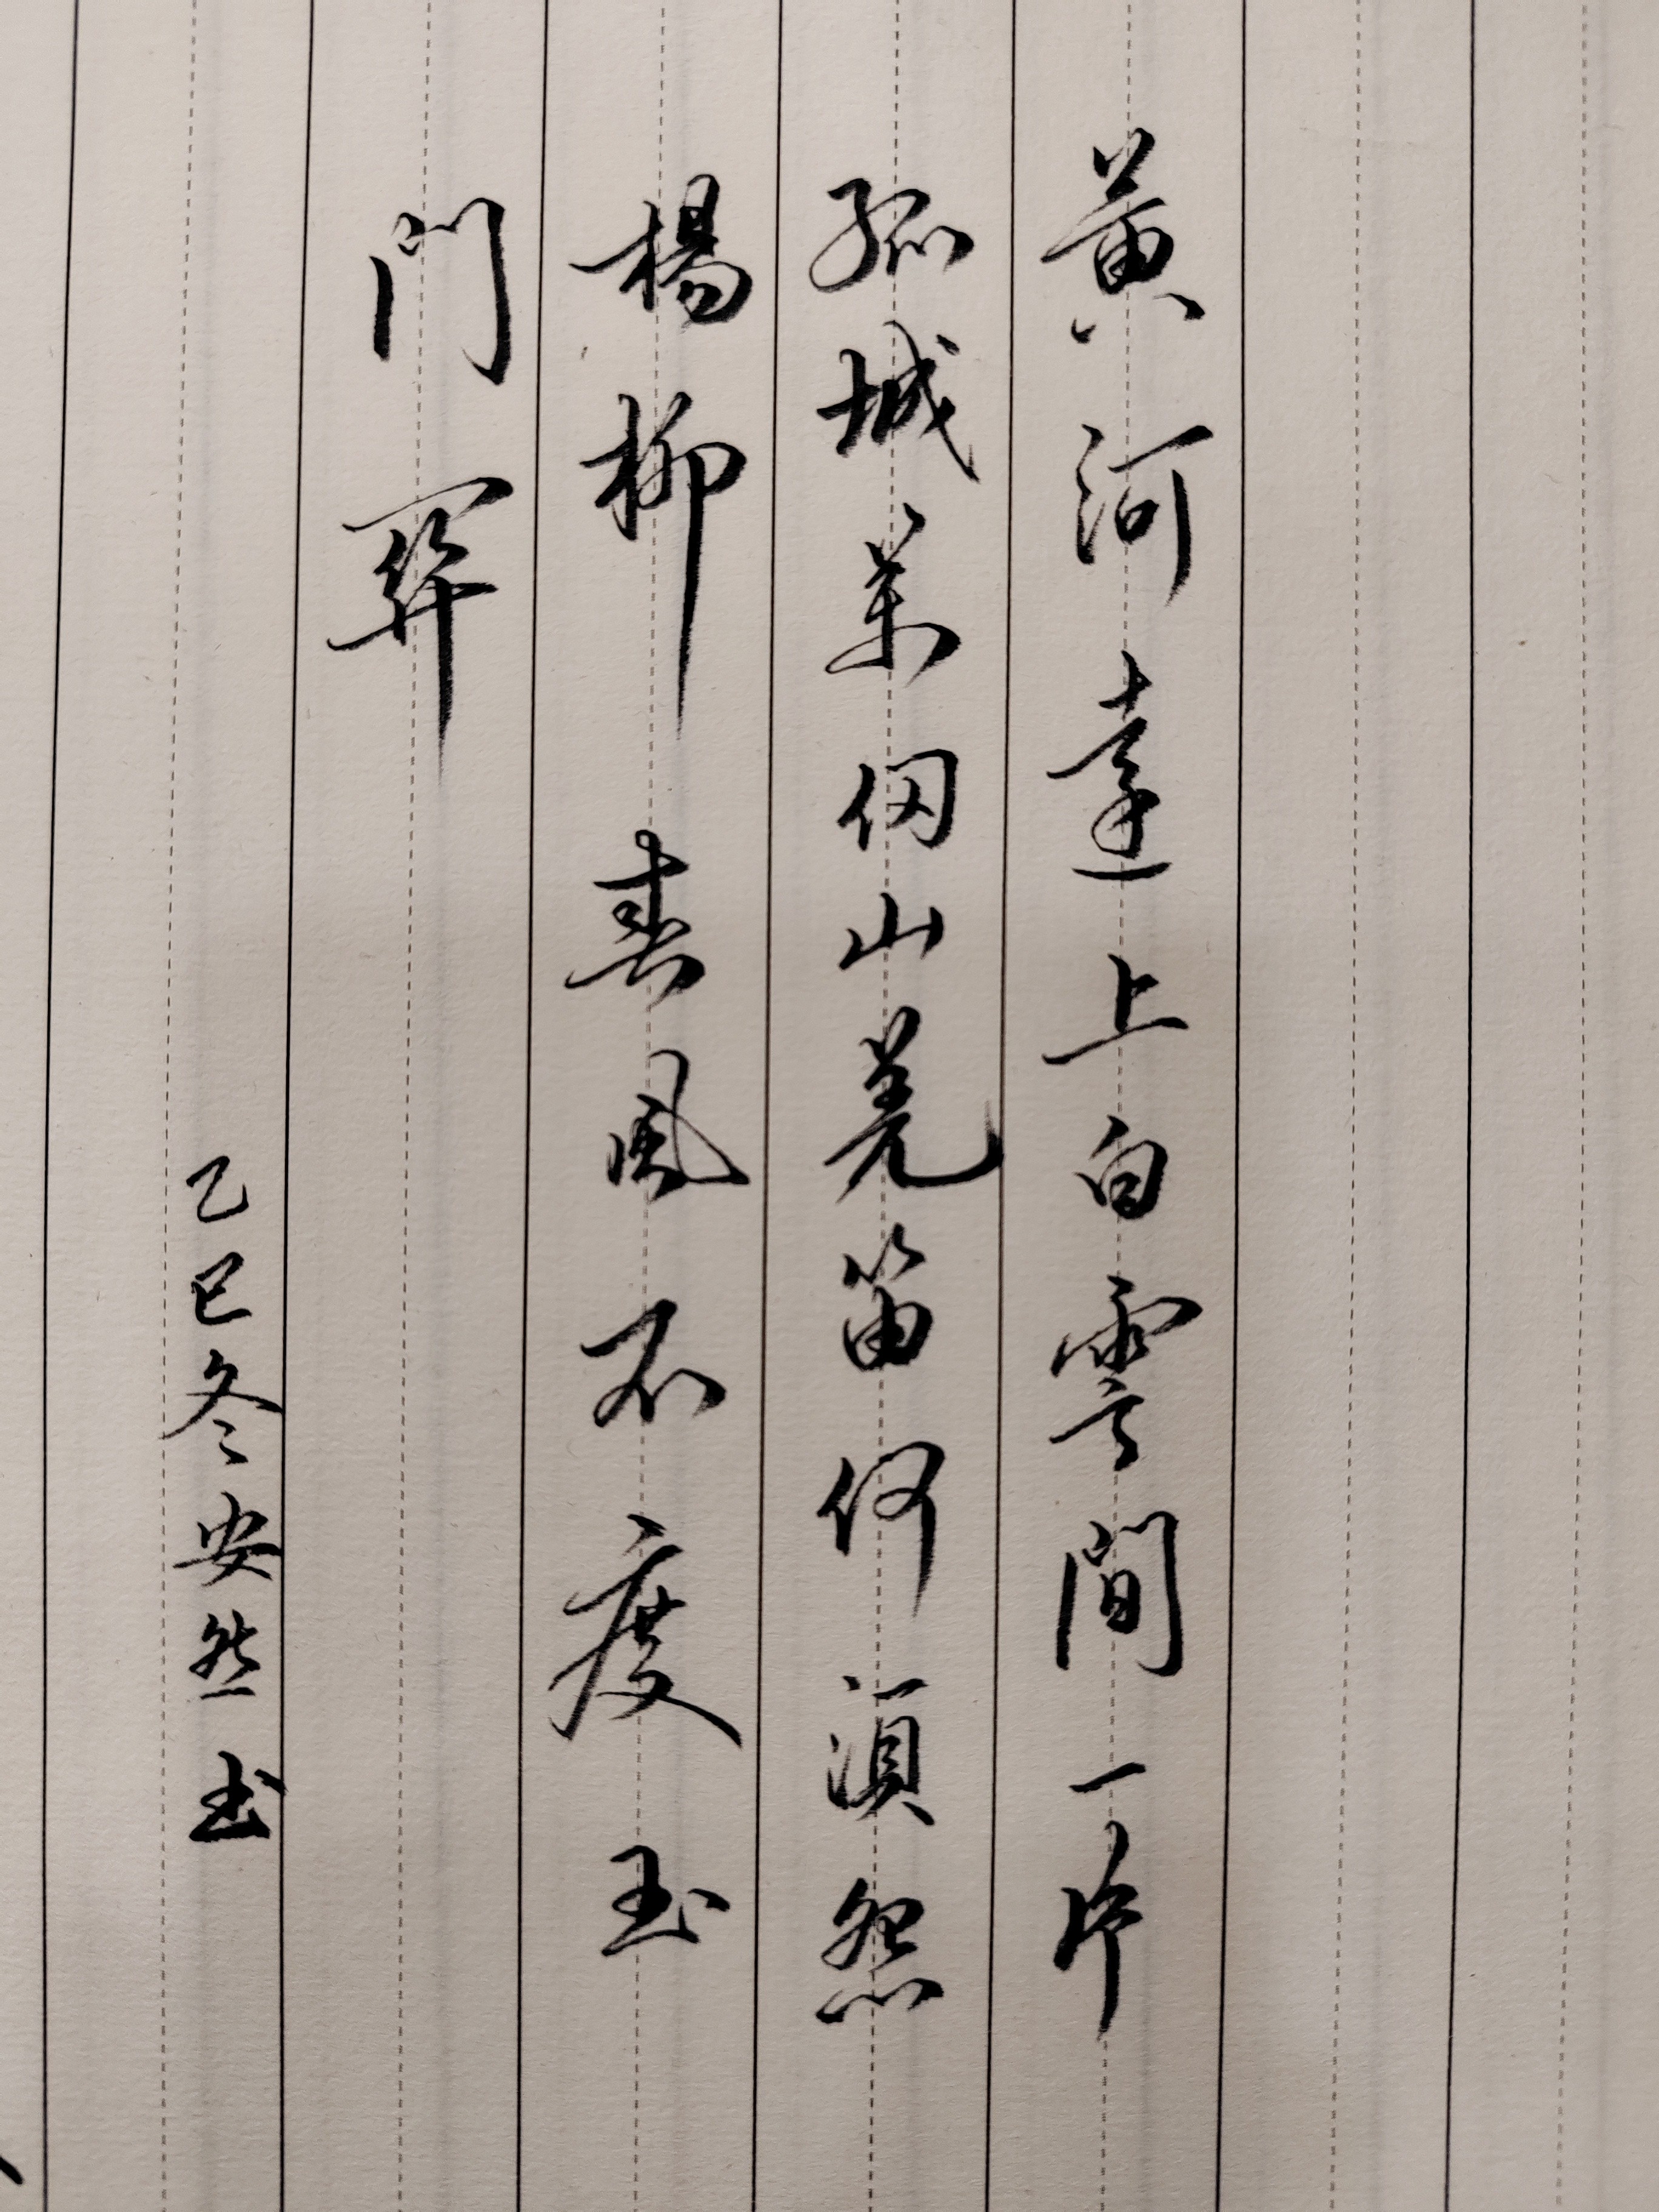 黄河遠上白雲間一片
孤城萬仞山羌笛何須怨
楊柳春風不度玉
門關
乙巳冬安然書